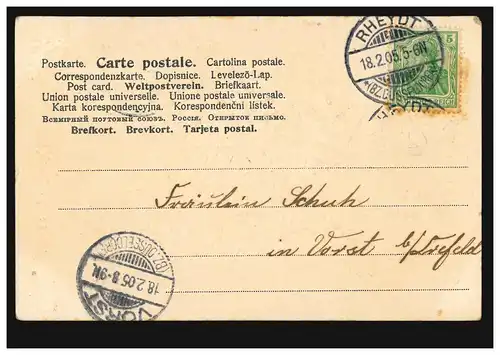 Postkarte. Carte postale. Cartolina postale.
Correspondenzkarte. Dopisnice. Levelező-Lap.
Post card. Weltpostverein. Briefkaart.
Union postale universelle. Unione postale universale.
Karta korespondencyjna. Korespondenční lístek.
Всемірный почтовый союзъ. Россія. Открытое письмо.
Brefkort. Brevkort. Tarjeta postal.
RHEYDT
18.2.05.5-6N
(BZ.DÜSSELDORF)
5
RHEYDT
Fräulein Schuh
in Vorst b/Crefeld
(BZ.DÜSSELDORF)
18.2.05.8-9N.
VORST